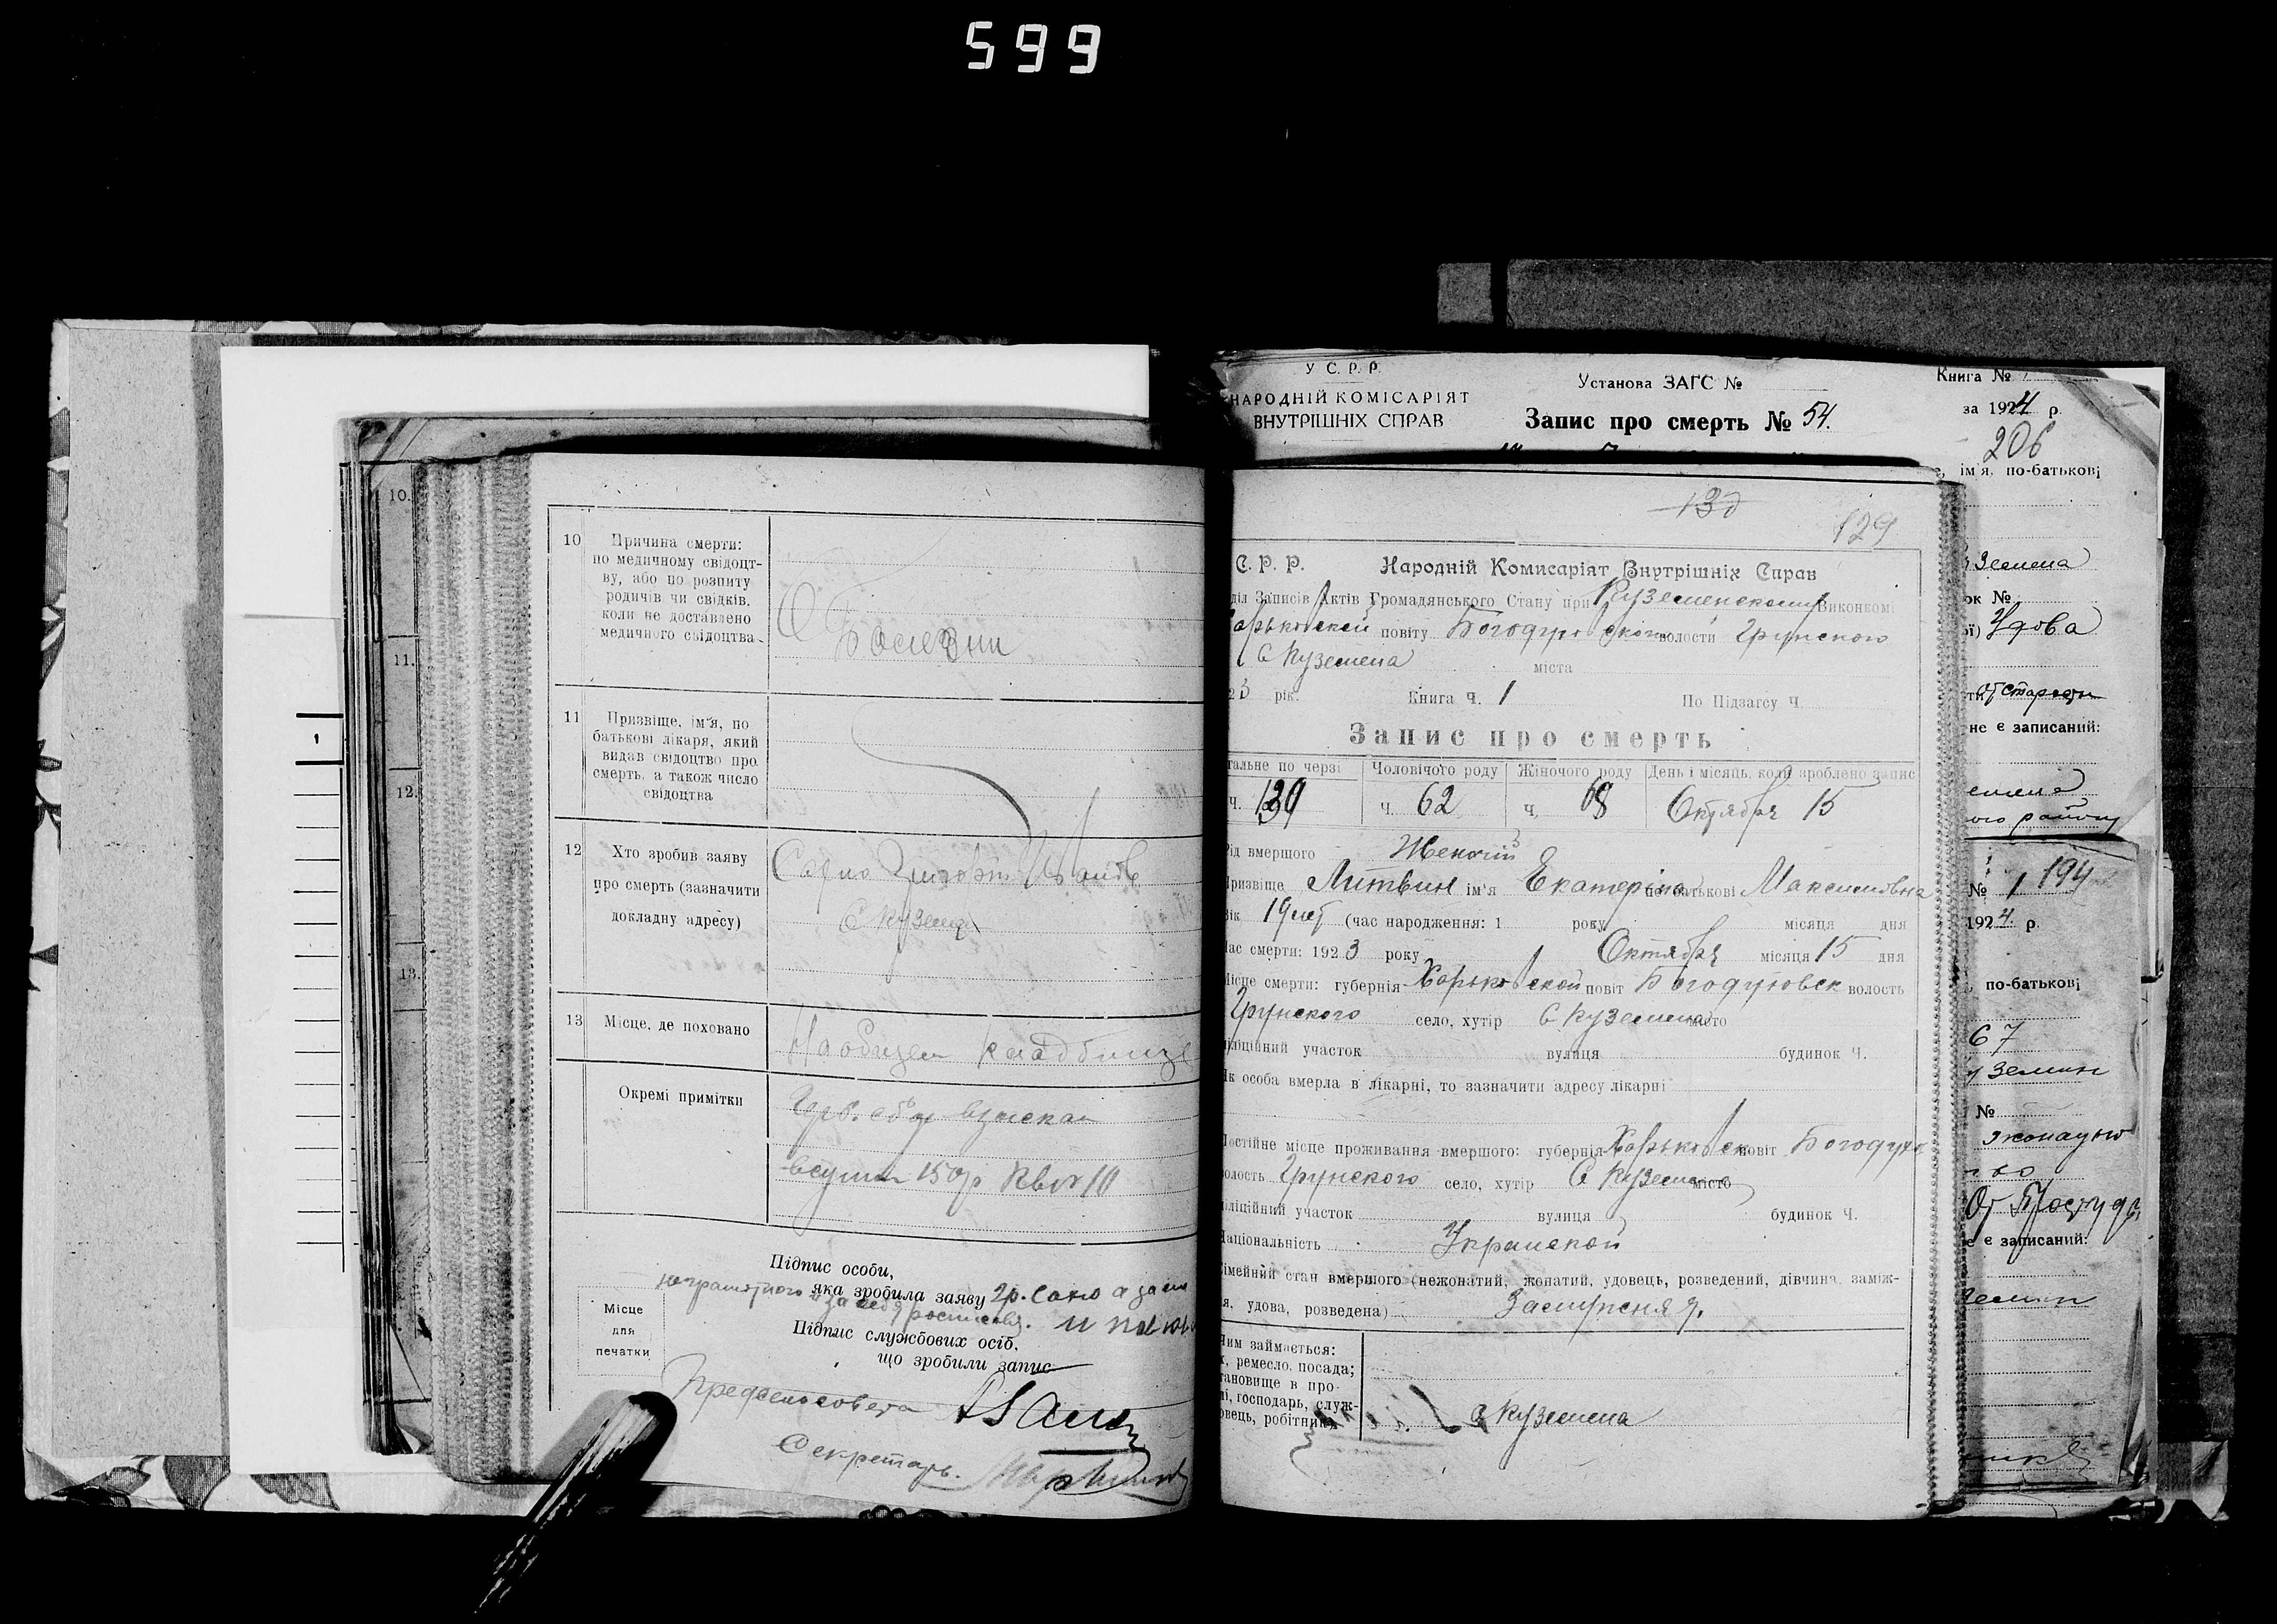 599
10.
11.
12.
13.
10 Причина смерти:
по медичному свідоцт-
ву, або по розпиту
родичів чи свідків,
коли не доставлено
медичного свідоцтва.
Болезни
11 Призвіще, ім'я, по
батькові лікаря, який
видав свідоцтво про
смерть, а також число
свідоцтва
12 Хто зробив заяву
про смерть (зазначити
докладну адресу)
с Куземи
13 Місце, де поховано
кладбище
Окремі примітки
взыскан
150р Квит 10
Підпис особи,
яка зробила заяву гр. Сахно а за
неграмотного
росписався.
Місце
для
печатки
Підпис службових осіб,
що зробили запис
Предсельсовета
Секретарь.
У С. Р. Р.
НАРОДНІЙ КОМІСАРІЯТ
ВНУТРІШНІХ СПРАВ
Установа ЗАГС №
Запис про смерть № 54.
Книга №
за 1924 р.
206
ім'я, по-батькові
130
129
С. Р. Р. Народній Комисаріят Внутрішніх Справ
діл Записів Актів Громадянського Стану при Куземенском Виконкомі
Харьковской повіту Богодуховской волости Грунского
с Куземена міста
23 рік. Книга ч. 1 По Підзагсу Ч.
Запис про смерть
гальне по черзі Чоловічого роду Жіночого роду День і місяць, коли зроблено запис
ч. 130 ч. 62 ч. 68 Октября 15
Рід вмершого Женский
Призвіще Литвин ім'я Екатеріна по батькові Максимовна
Вік 19 лет (час народження: 1 року місяця дня
Час смерти: 1923 року Октября місяця 15 дня
Місце смерти: губернія Харьковской повіт Богодуховск волость
Грунского село, хутір с Куземена місто
міліційний участок вулиця будинок Ч.
Як особа вмерла в лікарні, то зазначити адресу лікарні
Постійне місце проживання вмершого: губернія Харьковск повіт Богодухо
волость Грунского село, хутір с Куземена місто
міліційний участок вулиця будинок Ч.
Національність Украинской
сімейний стан вмершого (нежонатий, жонатий, удовець, розведений, дівчина, заміж-
ня, удова, розведена) Замужняя.
Чим займається:
х, ремесло, посада;
тановище в про-
і, господарь, служ-
овець, робітник
с Куземена
земена
ок №
Удова
от старости
не є записаний:
ого району
№ 1 194
1924 р.
по-батькові
67
№
От Простуды
е є записаний: